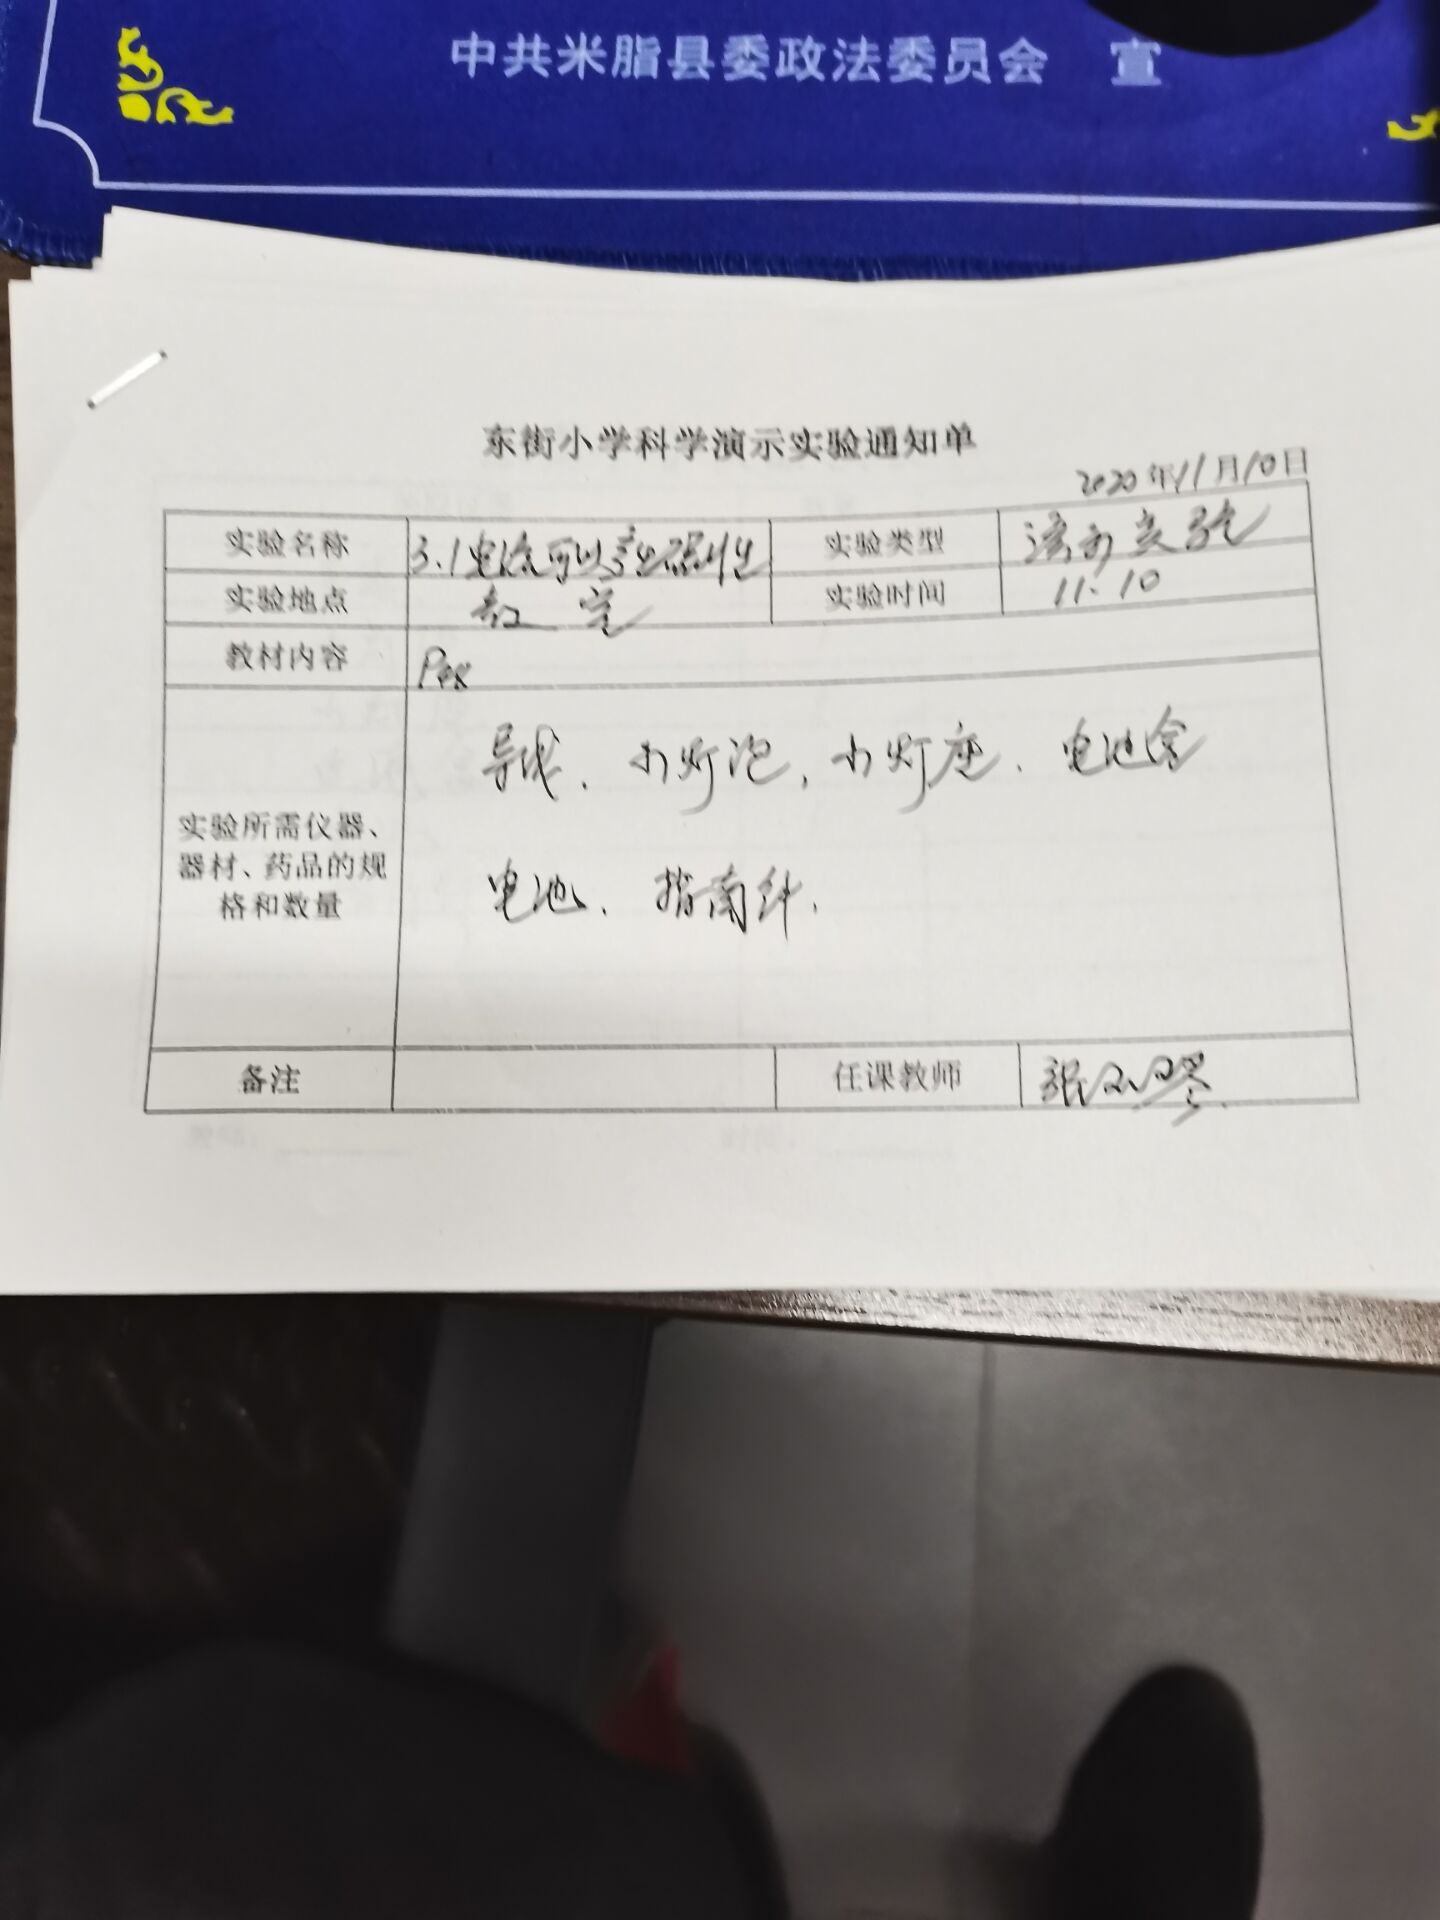 中共米脂县委政法委员会 宣
东街小学科学演示实验通知单
2020年11月10日
实验名称 3.1电流可以产生磁性 实验类型 演示实验
实验地点 教室 实验时间 11.10
教材内容
导线、小灯泡、小灯座、电池盒
实验所需仪器、
器材、药品的规
格和数量
电池、指南针、
备注 任课教师 张